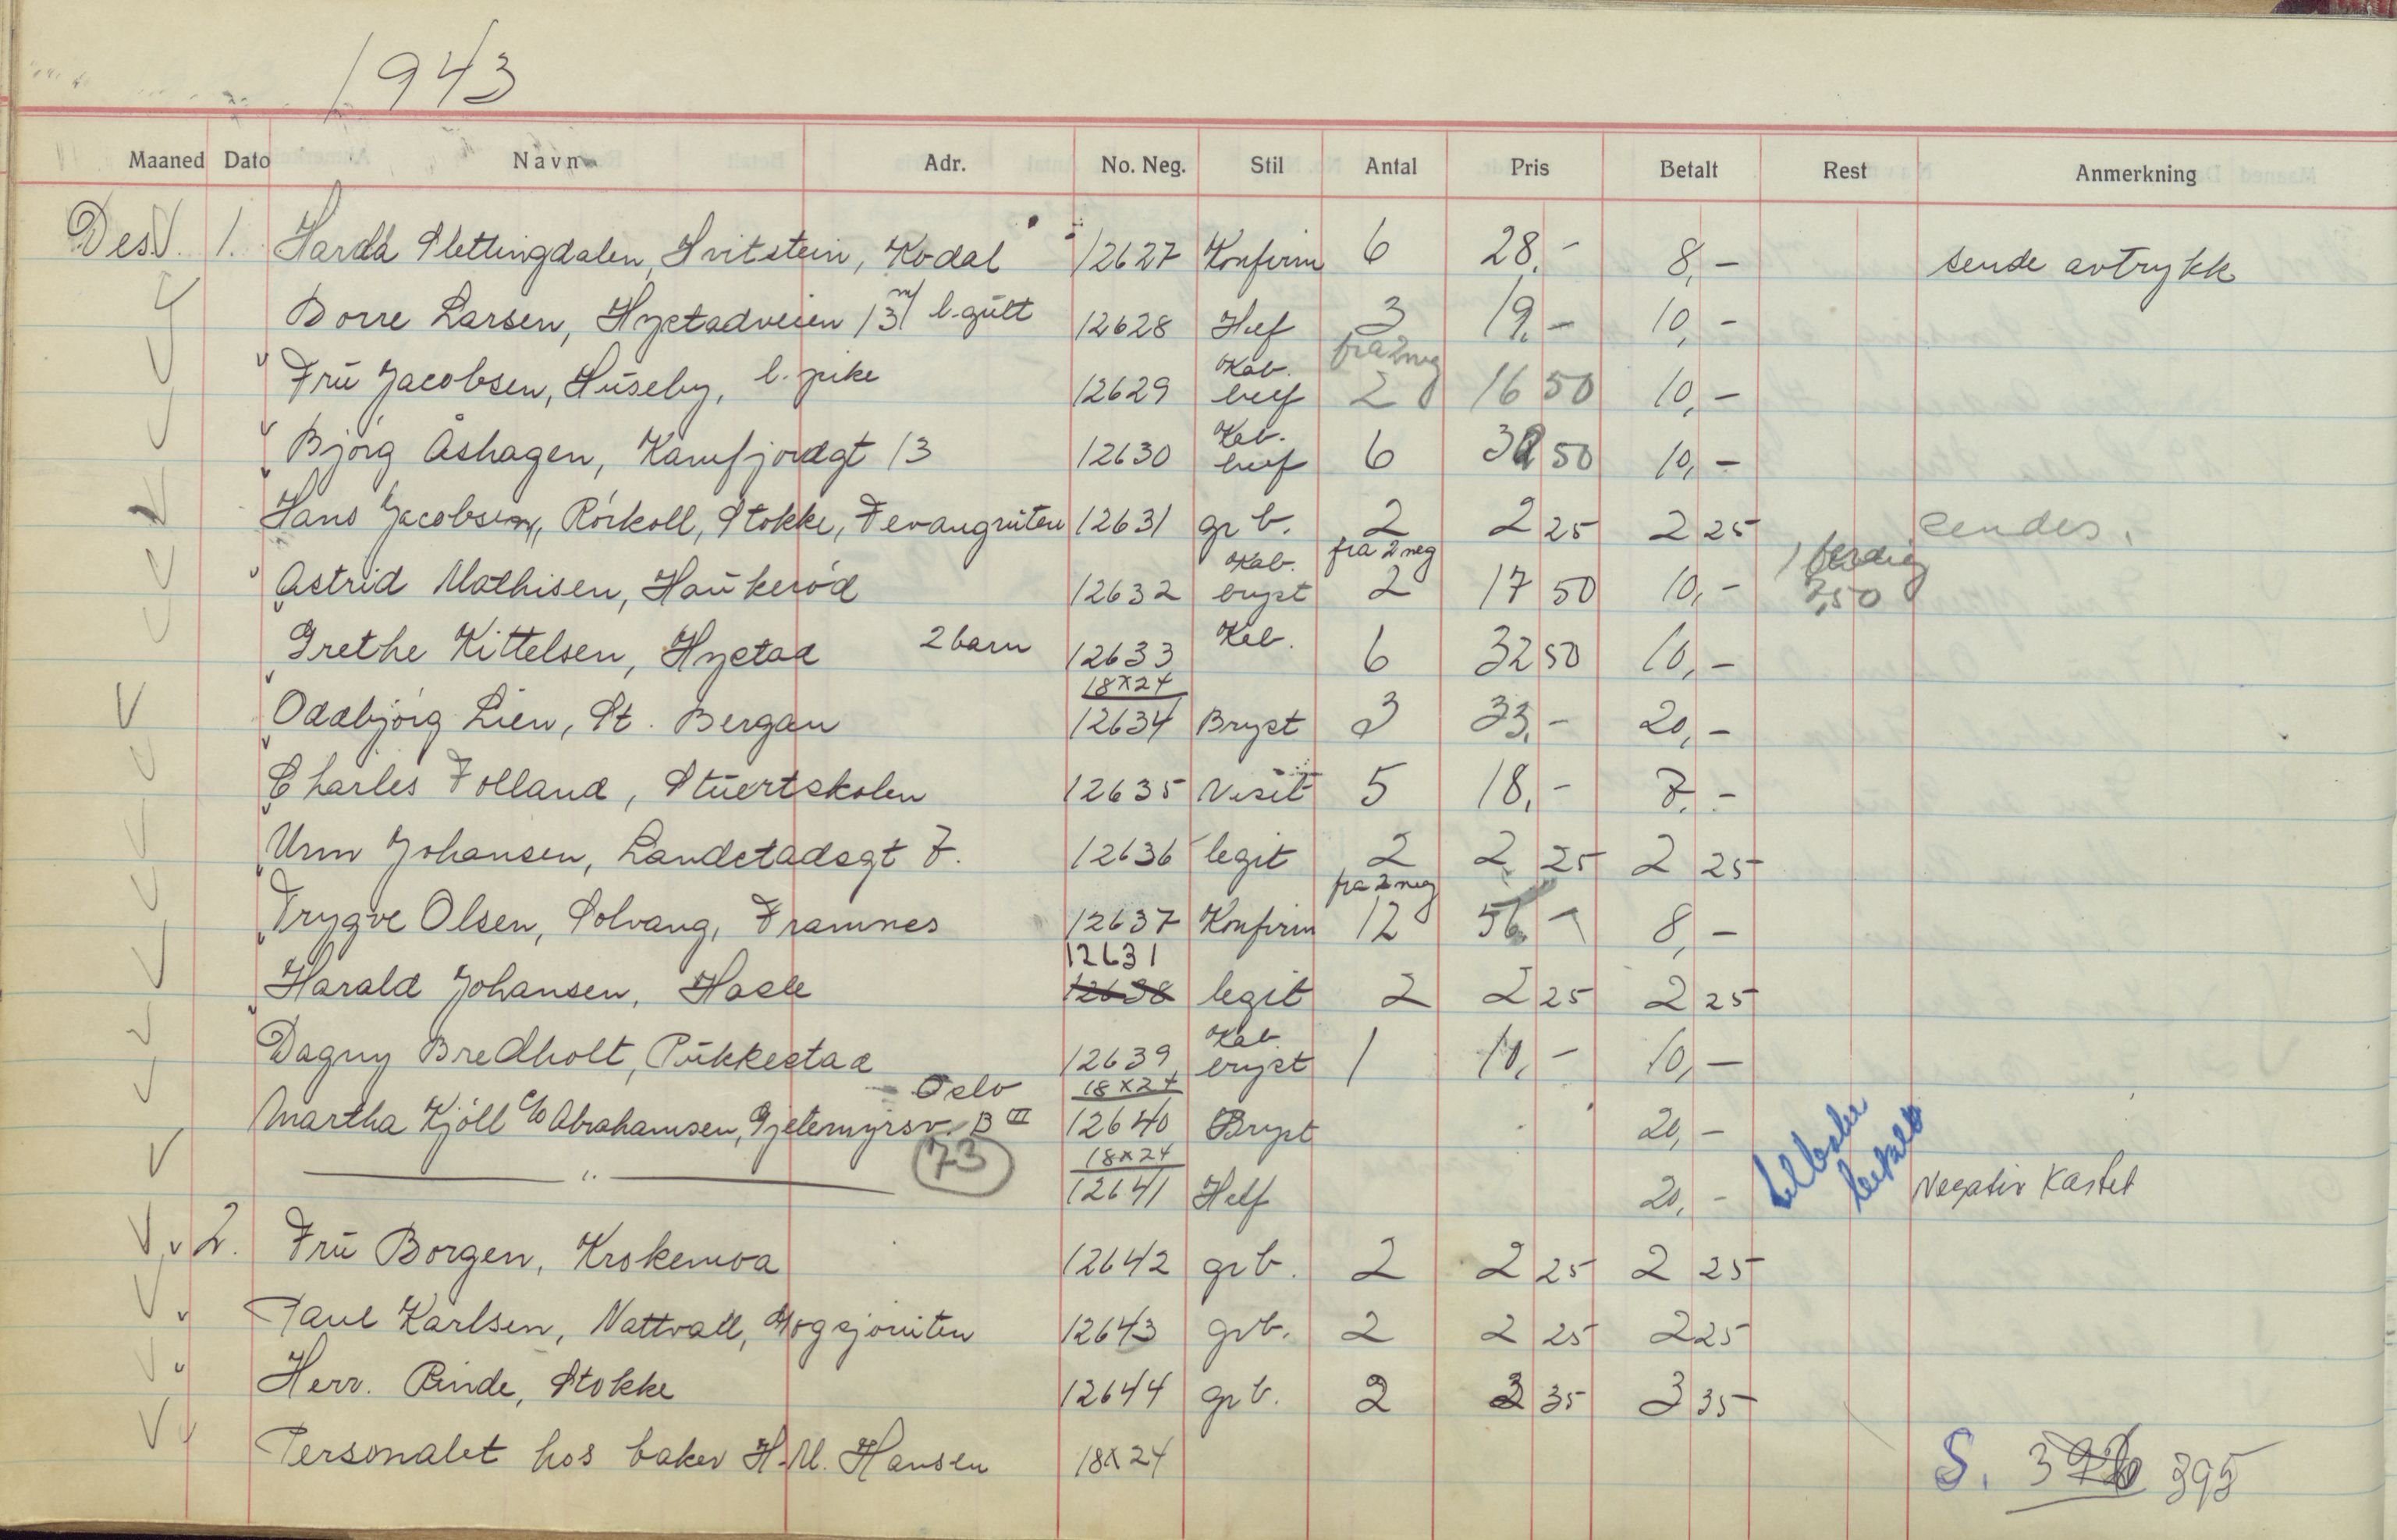 1943
Maaned Dato Navn Adr. No. Neg. Stil Antal Pris Betalt Rest Anmerkning
Des. 1. Slettingdalen, Hvitstein, Kodal 12627 Konfirm 6 28,- 8,- sende avtrykk
Borre Larsen, Hystadveien 13 m/ l. gutt 12628 Helf 3 19,- 10,-
Kab. fra 2 neg
Frū Jacobsen, Hūseby, l. pike 12629 helf 2 16 50 10,-
Kab.
Bjórg Åshagen, Kamfjordgt 13 12630 helf 6 50 10,-
Hans Jacobsen, Rórkoll, Stokke, Fevangruten 12631 gr b. 2 2 25 2 25 sendes.
Kab. fra 2 neg 1 ferdig
Astrid Mathisen, Haūkeród 12632 bryst 2 17 50 10,- 7,50
Grethe Kittelsen, Hystad 2 barn 12633 Kab. 6 32 50 10,-
18x24
Oddbjórg Lien, St. Bergan 12634 Bryst 3 33,- 20,-
Charles Folland, Stūertskolen 12635 Visit 5 18,- 7,-
Unn Johansen, Landstadsgt 7. 12636 legit 2 2 25 2 25
fra 2 neg
Trygve Olsen, Solvang, Framnes 12637 Konfirm 12 56,- 8,-
12631
Harald Johansen, Hasle 12638 legit 2 2 25 2 25
Kab
Dagny Bredholt, Pūkkestad 12639 bryst 1 10,- 10,-
Oslo 18x24
Martha Kjóll c/o Abrahamsen, Gjetemyrsv. B III 12640 Bryst 20,-
73 18x24
— " — 12641 Helf 20,- tilbake betalt Negativ Kastet
2. Frū Borgen, Krokemoa 12642 gr b. 2 2 25 2 25
Paul Karlsen, Nattvall, Hogsjóruten 12643 gr b. 2 2 25 2 25
Herr. Rinde, Stokke 12644 gr b. 2 3 35 3 35
Personalet hos baker H. M. Hansen 18x24
S. 395